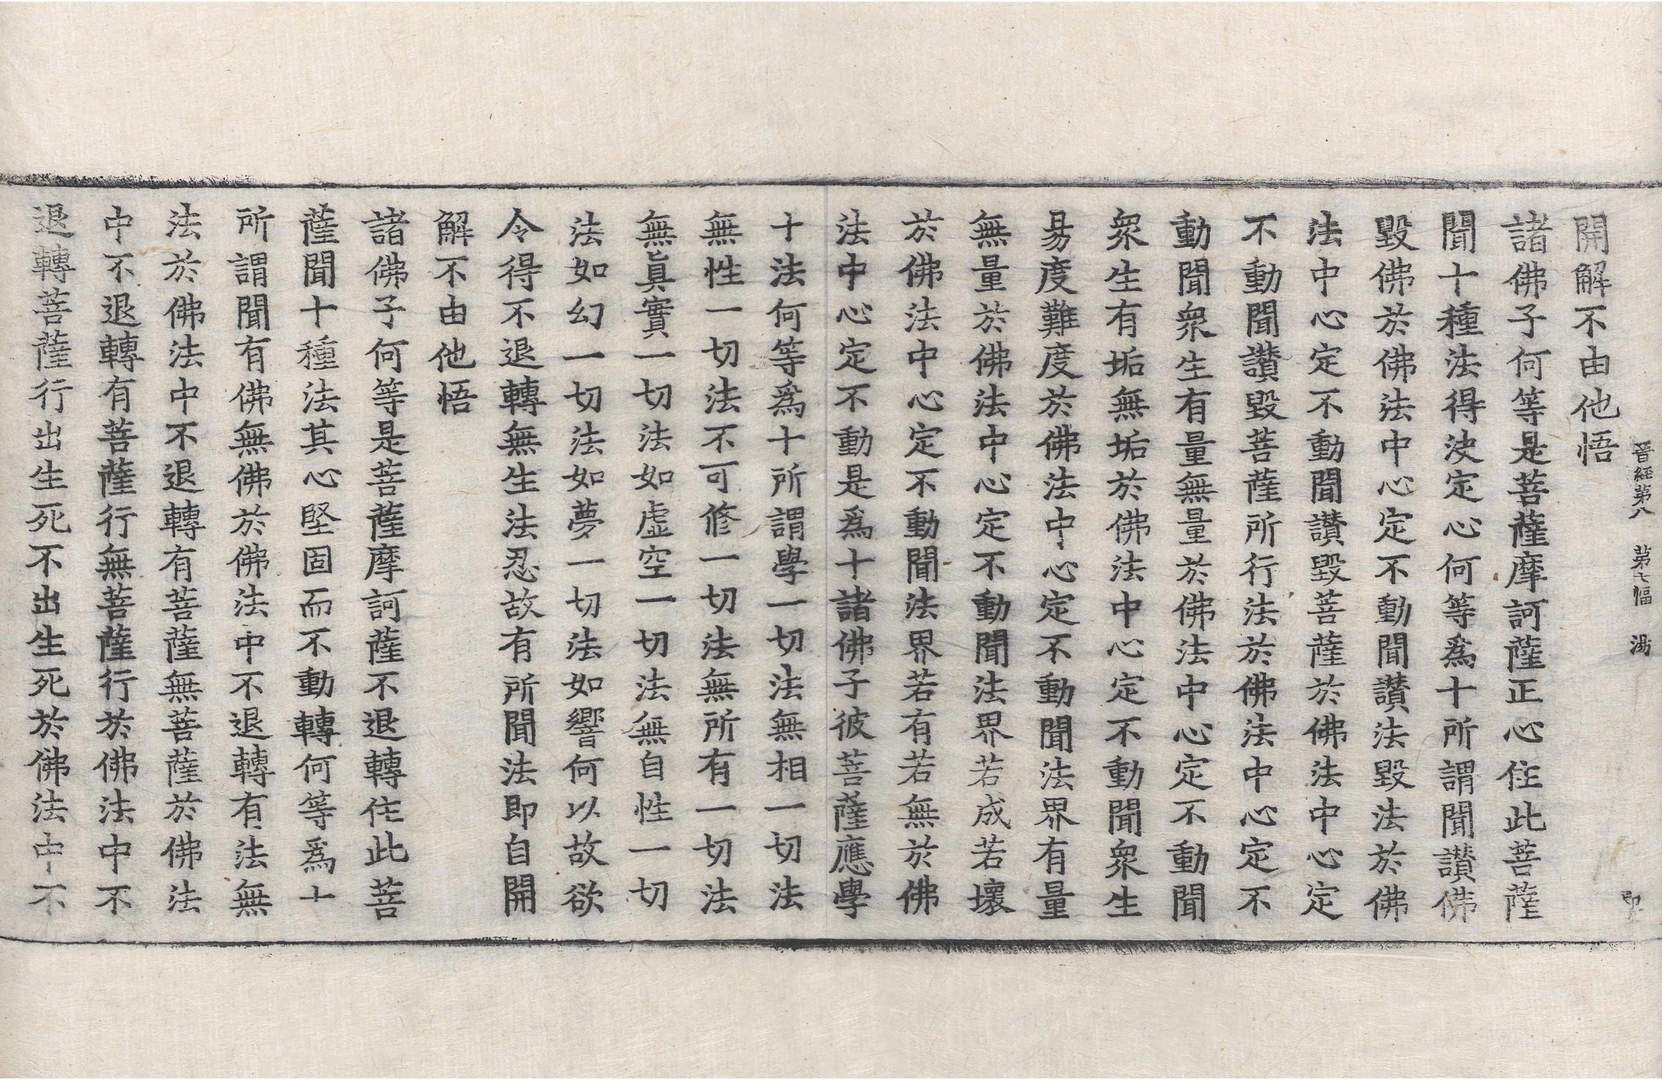 晉經第八　第七幅　湯
開解不由他悟
諸佛子何等是菩薩摩訶薩正心住此菩薩
聞十種法得決定心何等爲十所謂聞讃佛
毀佛於佛法中心定不動聞讃法毀法於佛
法中心定不動聞讃毀菩薩於佛法中心定
不動聞讃毀菩薩所行法於佛法中心定不
動聞衆生有量無量於佛法中心定不動聞
衆生有垢無垢於佛法中心定不動聞衆生
易度難度於佛法中心定不動聞法界有量
無量於佛法中心定不動聞法界若成若壞
於佛法中心定不動聞法界若有若無於佛
法中心定不動是爲十諸佛子彼菩薩應學
十法何等爲十所謂學一切法無相一切法
無性一切法不可修一切法無所有一切法
無眞實一切法如虛空一切法無自性一切
法如幻一切法如夢一切法如響何以故欲
令得不退轉無生法忍故有所聞法即自開
解不由他悟
諸佛子何等是菩薩摩訶薩不退轉住此菩
薩聞十種法其心堅固而不動轉何等爲十
所謂聞有佛無佛於佛法中不退轉有法無
法於佛法中不退轉有菩薩無菩薩於佛法
中不退轉有菩薩行無菩薩行於佛法中不
退轉菩薩行出生死不出生死於佛法中不